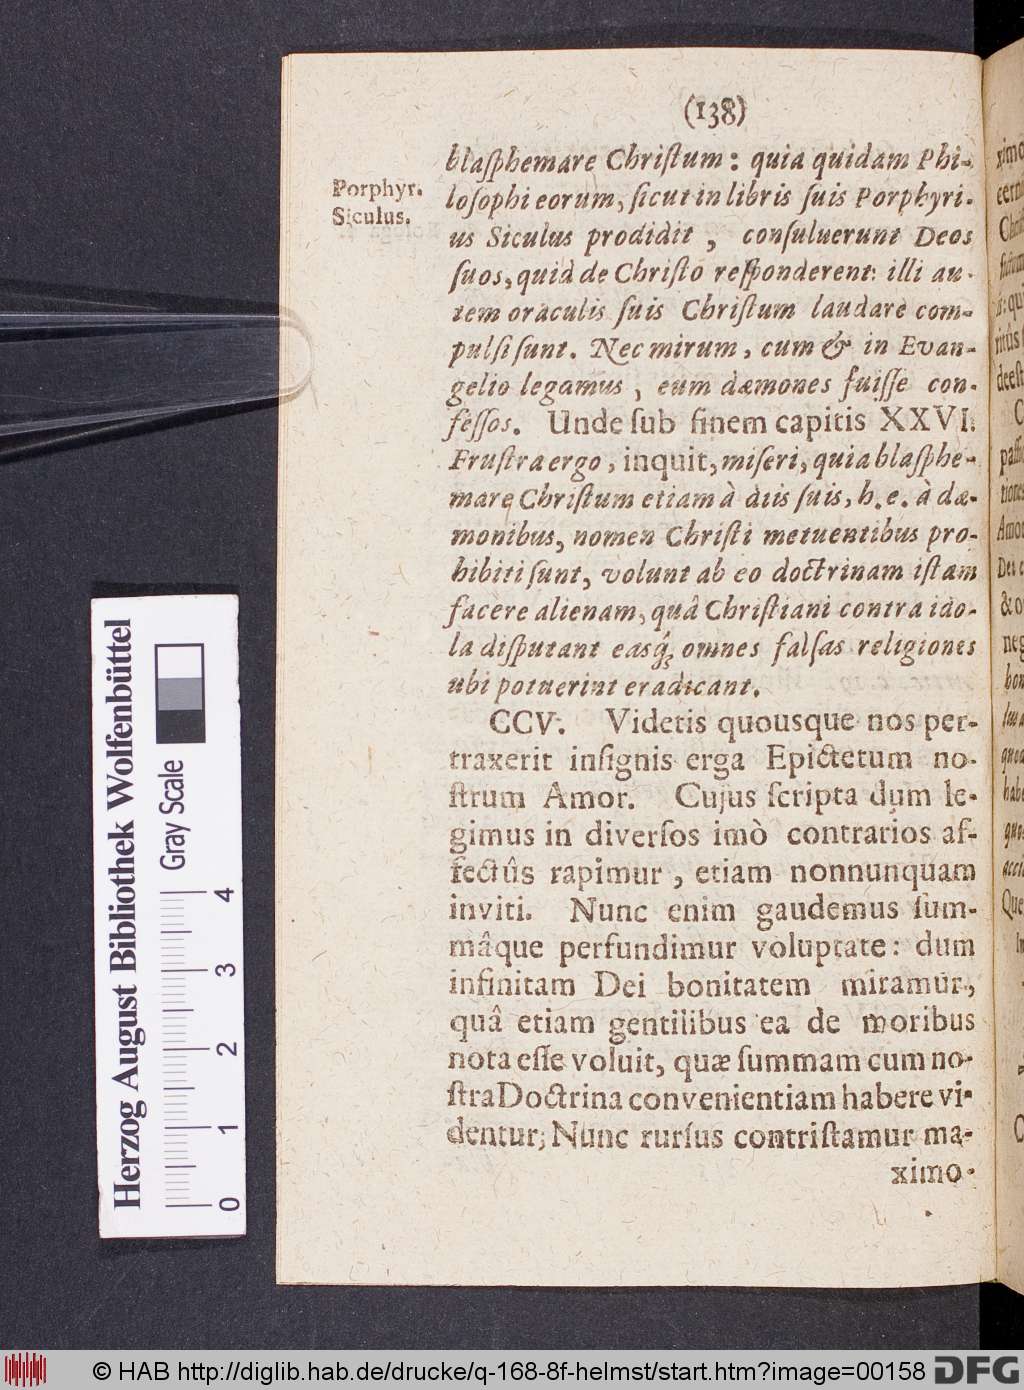 (138)
blaſphemare Chriſtum: quia quidam Phi-
Porphyr.
Siculus.
loſophi eorum, ſicut in libris ſuis Porphyri-
us Siculus prodidit, conſuluerunt Deos
ſuos, quid de Chriſto reſponderent: illi au-
tem oraculis ſuis Chriſtum laudare com-
pulſi ſunt. Nec mirum, cum & in Evan-
gelio legamus, eum dæmones fuiſſe con-
feſſos. Unde ſub finem capitis XXVI.
Fruſtra ergo, inquit, miſeri, quia blaſphe-
mare Chriſtum etiam à diis ſuis, h. e. à dæ-
monibus, nomen Chriſti metuentibus pro-
hibiti ſunt, volunt ab eo doctrinam iſtam
facere alienam, quâ Chriſtiani contra ido-
la diſputant easq́; omnes falſas religiones
ubi potuerint eradicant.
CCV. Videtis quousque nos per-
traxerit inſignis erga Epictetum no-
ſtrum Amor. Cujus ſcripta dum le-
gimus in diverſos imò contrarios af-
fectûs rapimur, etiam nonnunquam
inviti. Nunc enim gaudemus ſum-
mâque perfundimur voluptate: dum
infinitam Dei bonitatem miramur,
quâ etiam gentilibus ea de moribus
nota eſſe voluit, quæ ſummam cum no-
ſtra Doctrina convenientiam habere vi-
dentur; Nunc rurſus contriſtamur ma-
ximo-
Herzog August Bibliothek Wolfenbüttel
Gray Scale
0 1 2 3 4
© HAB http://diglib.hab.de/drucke/q-168-8f-helmst/start.htm?image=00158
DFG